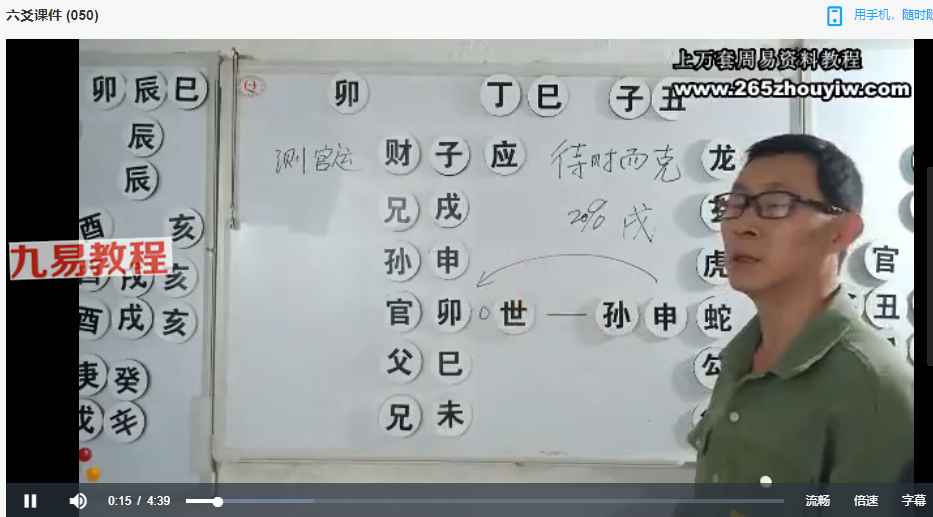 六爻课件 (050)
用手机，随时随
上万套周易资料教程
www.265zhouyiw.com
卯 辰 巳
卯 丁 巳 子 丑
辰
测官运 财 子 应 待时而克 龙
辰
兄 戌 20% 戌
酉 亥
九易教程
孙 申 虎 官
戌 亥
官 卯 世 — 孙 申 蛇 丑
酉 戌 亥
父 巳
庚 癸
兄 未
戊 辛
0:15 / 4:39 流畅 倍速 字幕